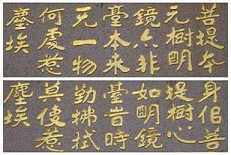 菩提本
无樹明
鏡亦非
臺本来
无一物
何處惹
塵埃
身佀菩
提樹心
如明鏡
臺時
勤拂拭
莫使惹
塵埃